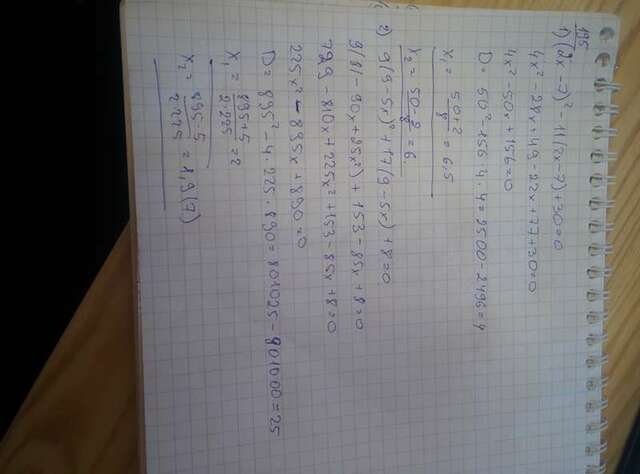 195
1) (2x - 7)² - 11(2x - 7) + 30 = 0
4x² - 28x + 49 - 22x + 77 + 30 = 0
4x² - 50x + 156 = 0
D = 50² - 156 · 4 · 4 = 2500 - 2496 = 4
x₁ = (50+2)/8 = 6.5
x₂ = (50-2)/8 = 6
2) 9(9 - 5x)² + 17(9 - 5x) + 8 = 0
9(81 - 90x + 25x²) + 153 - 85x + 8 = 0
729 - 810x + 225x² + 153 - 85x + 8 = 0
225x² - 895x + 890 = 0
D = 895² - 4 · 225 · 890 = 801025 - 801000 = 25
x₁ = (895+5)/(2·225) = 2
x₂ = (895-5)/(2·225) = 1,9(7)